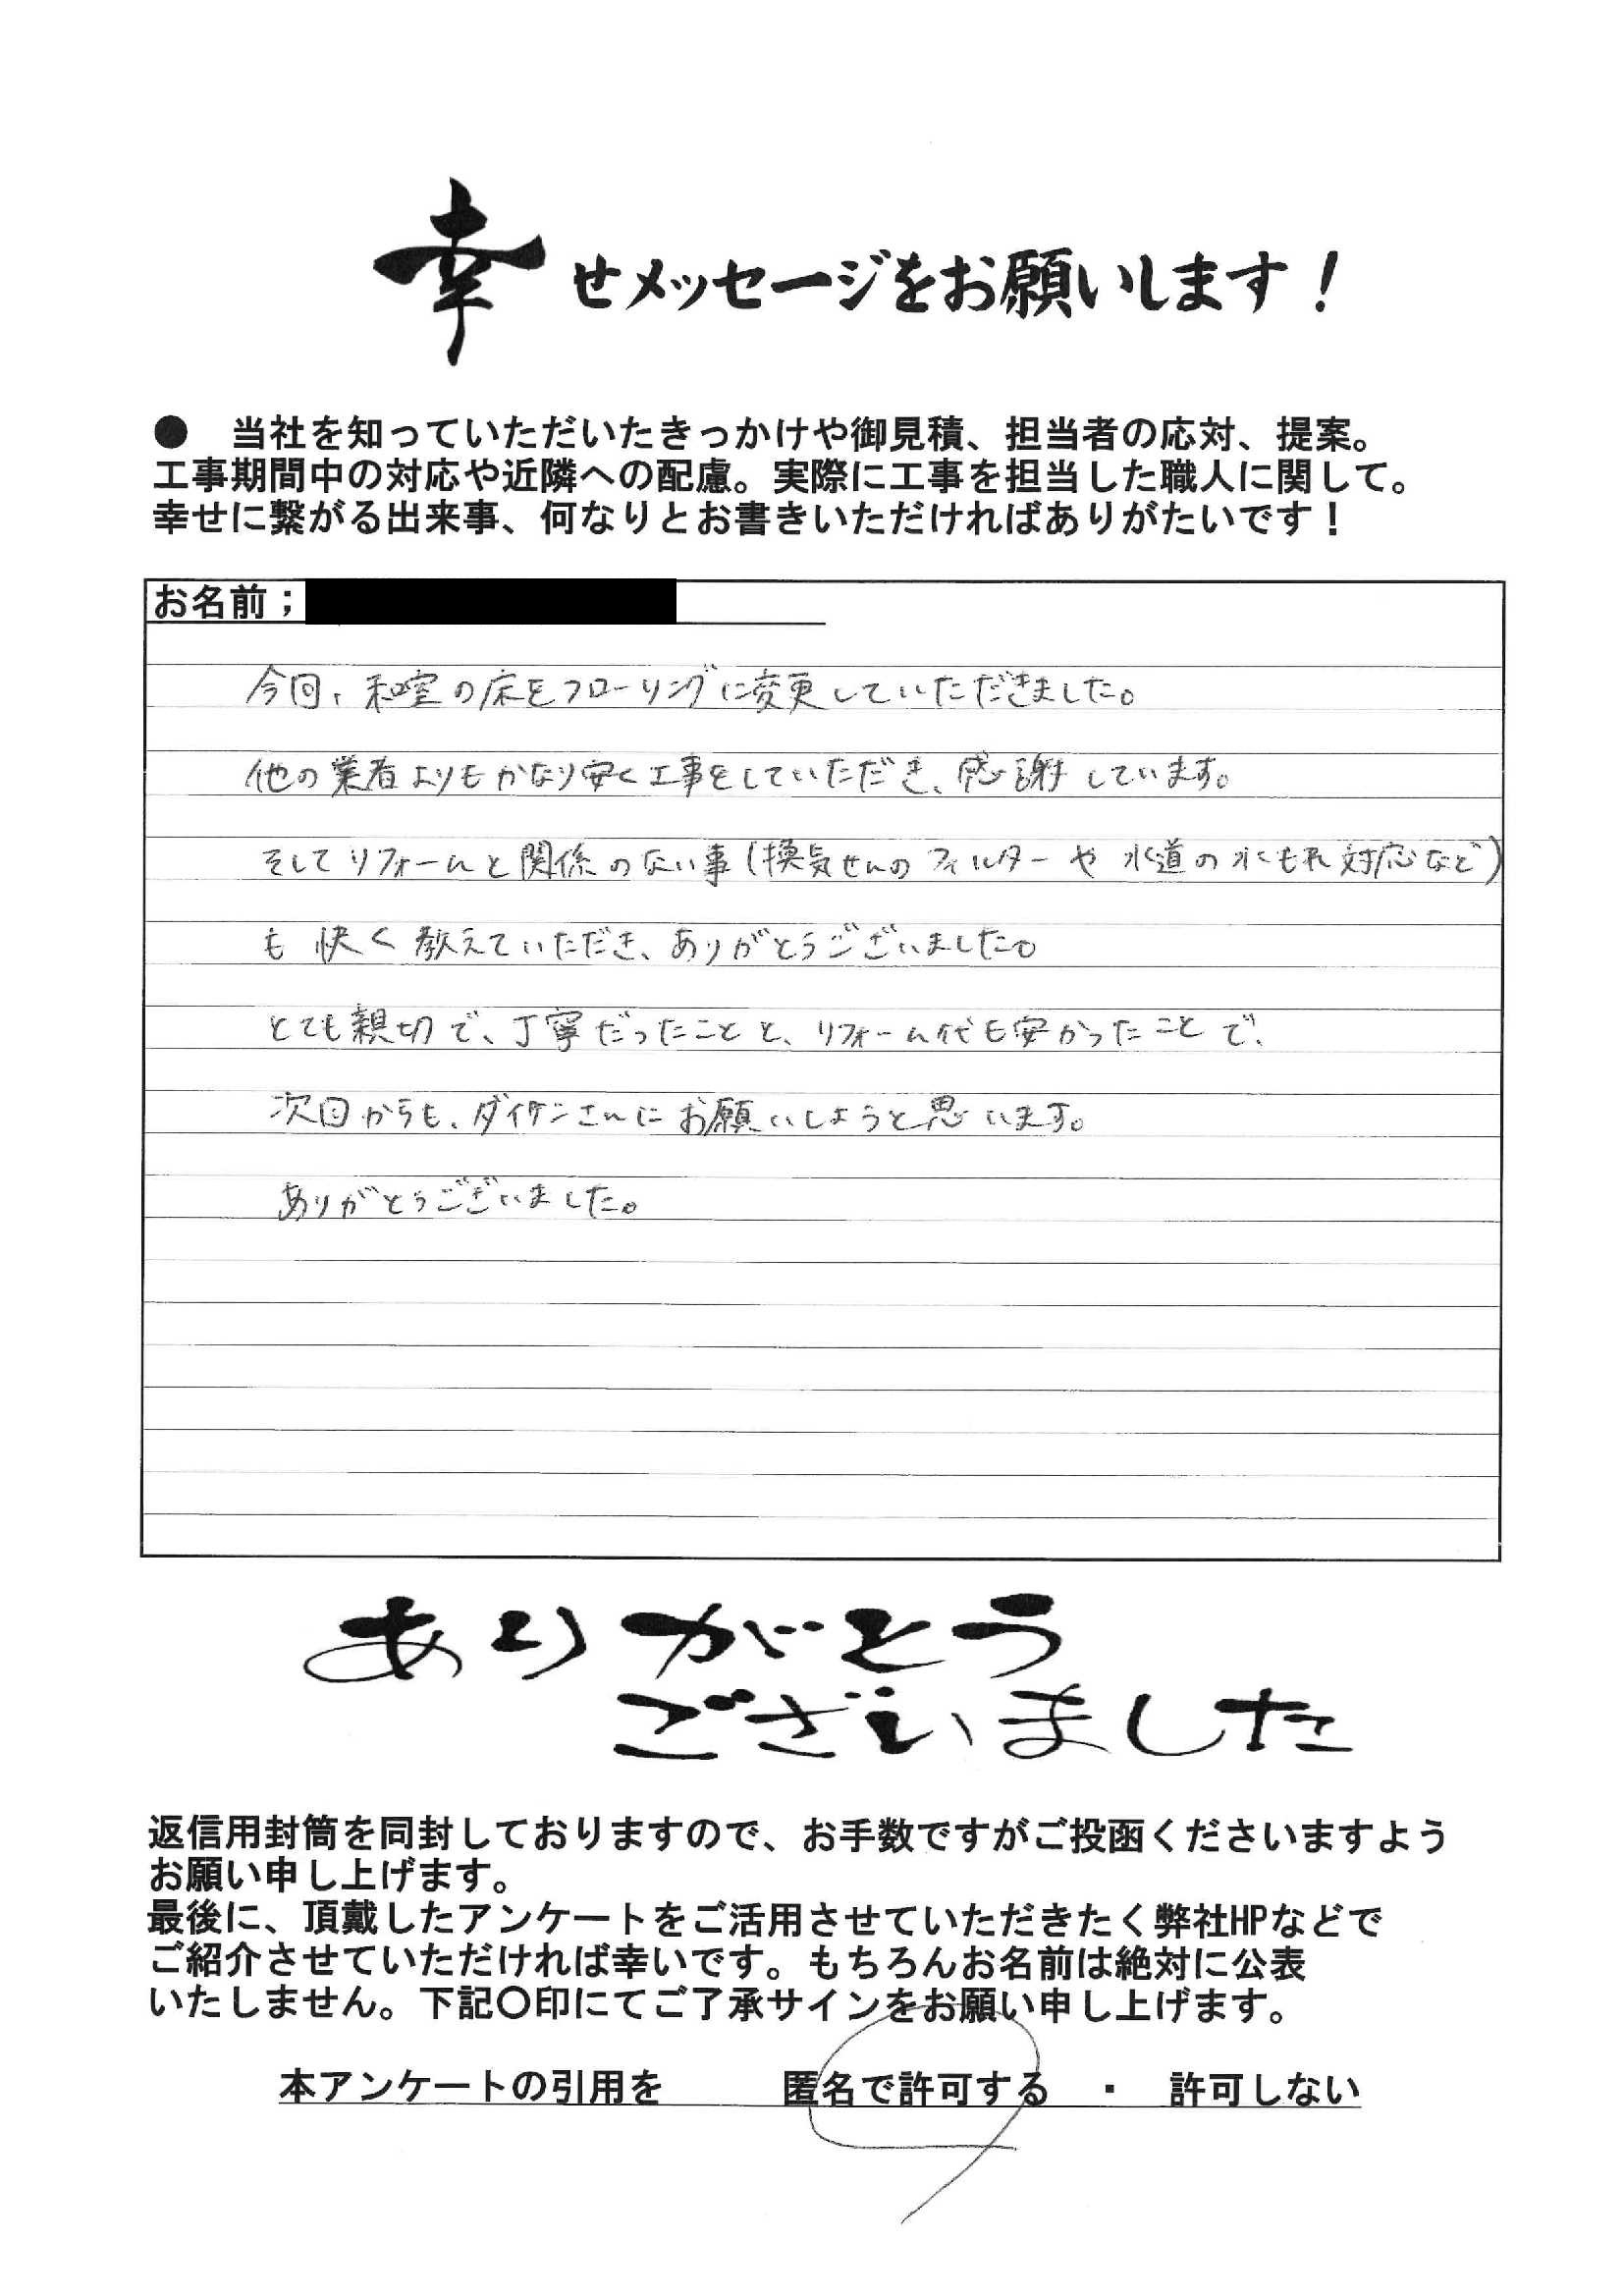 幸せメッセージをお願いします！
●　当社を知っていただいたきっかけや御見積、担当者の応対、提案。
工事期間中の対応や近隣への配慮。実際に工事を担当した職人に関して。
幸せに繋がる出来事、何なりとお書きいただければありがたいです！
お名前；
今回、和室の床をフローリングに変更していただきました。
他の業者よりもかなり安く工事をしていただき、感謝しています。
そしてリフォームと関係のない事（換気せんのフィルターや水道の水もれ対応など）
も快く教えていただき、ありがとうございました。
とても親切で、丁寧だったことと、リフォーム代も安かったことで、
次回からも、ダイケンさんにお願いしようと思います。
ありがとうございました。
ありがとう
ございました
返信用封筒を同封しておりますので、お手数ですがご投函くださいますよう
お願い申し上げます。
最後に、頂戴したアンケートをご活用させていただきたく弊社HPなどで
ご紹介させていただければ幸いです。もちろんお名前は絶対に公表
いたしません。下記〇印にてご了承サインをお願い申し上げます。
本アンケートの引用を　　匿名で許可する　・　許可しない